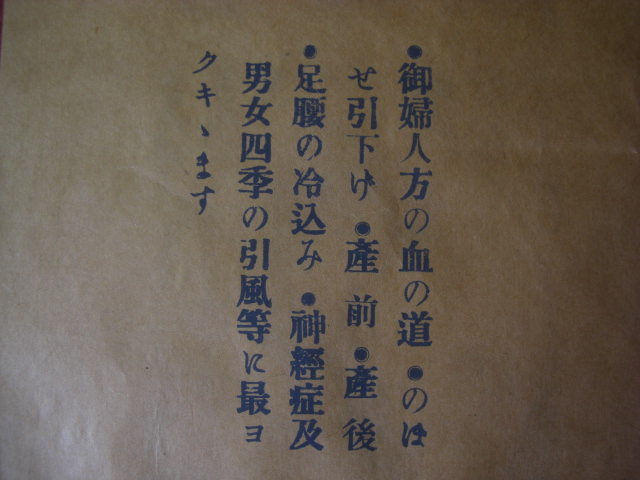 ◉御婦人方の血の道 ◉のぼ
せ引下げ ◉產前 ◉產後
◉足腰の冷込み ◉神經症及
男女四季の引風等に最ヨ
クキヽます